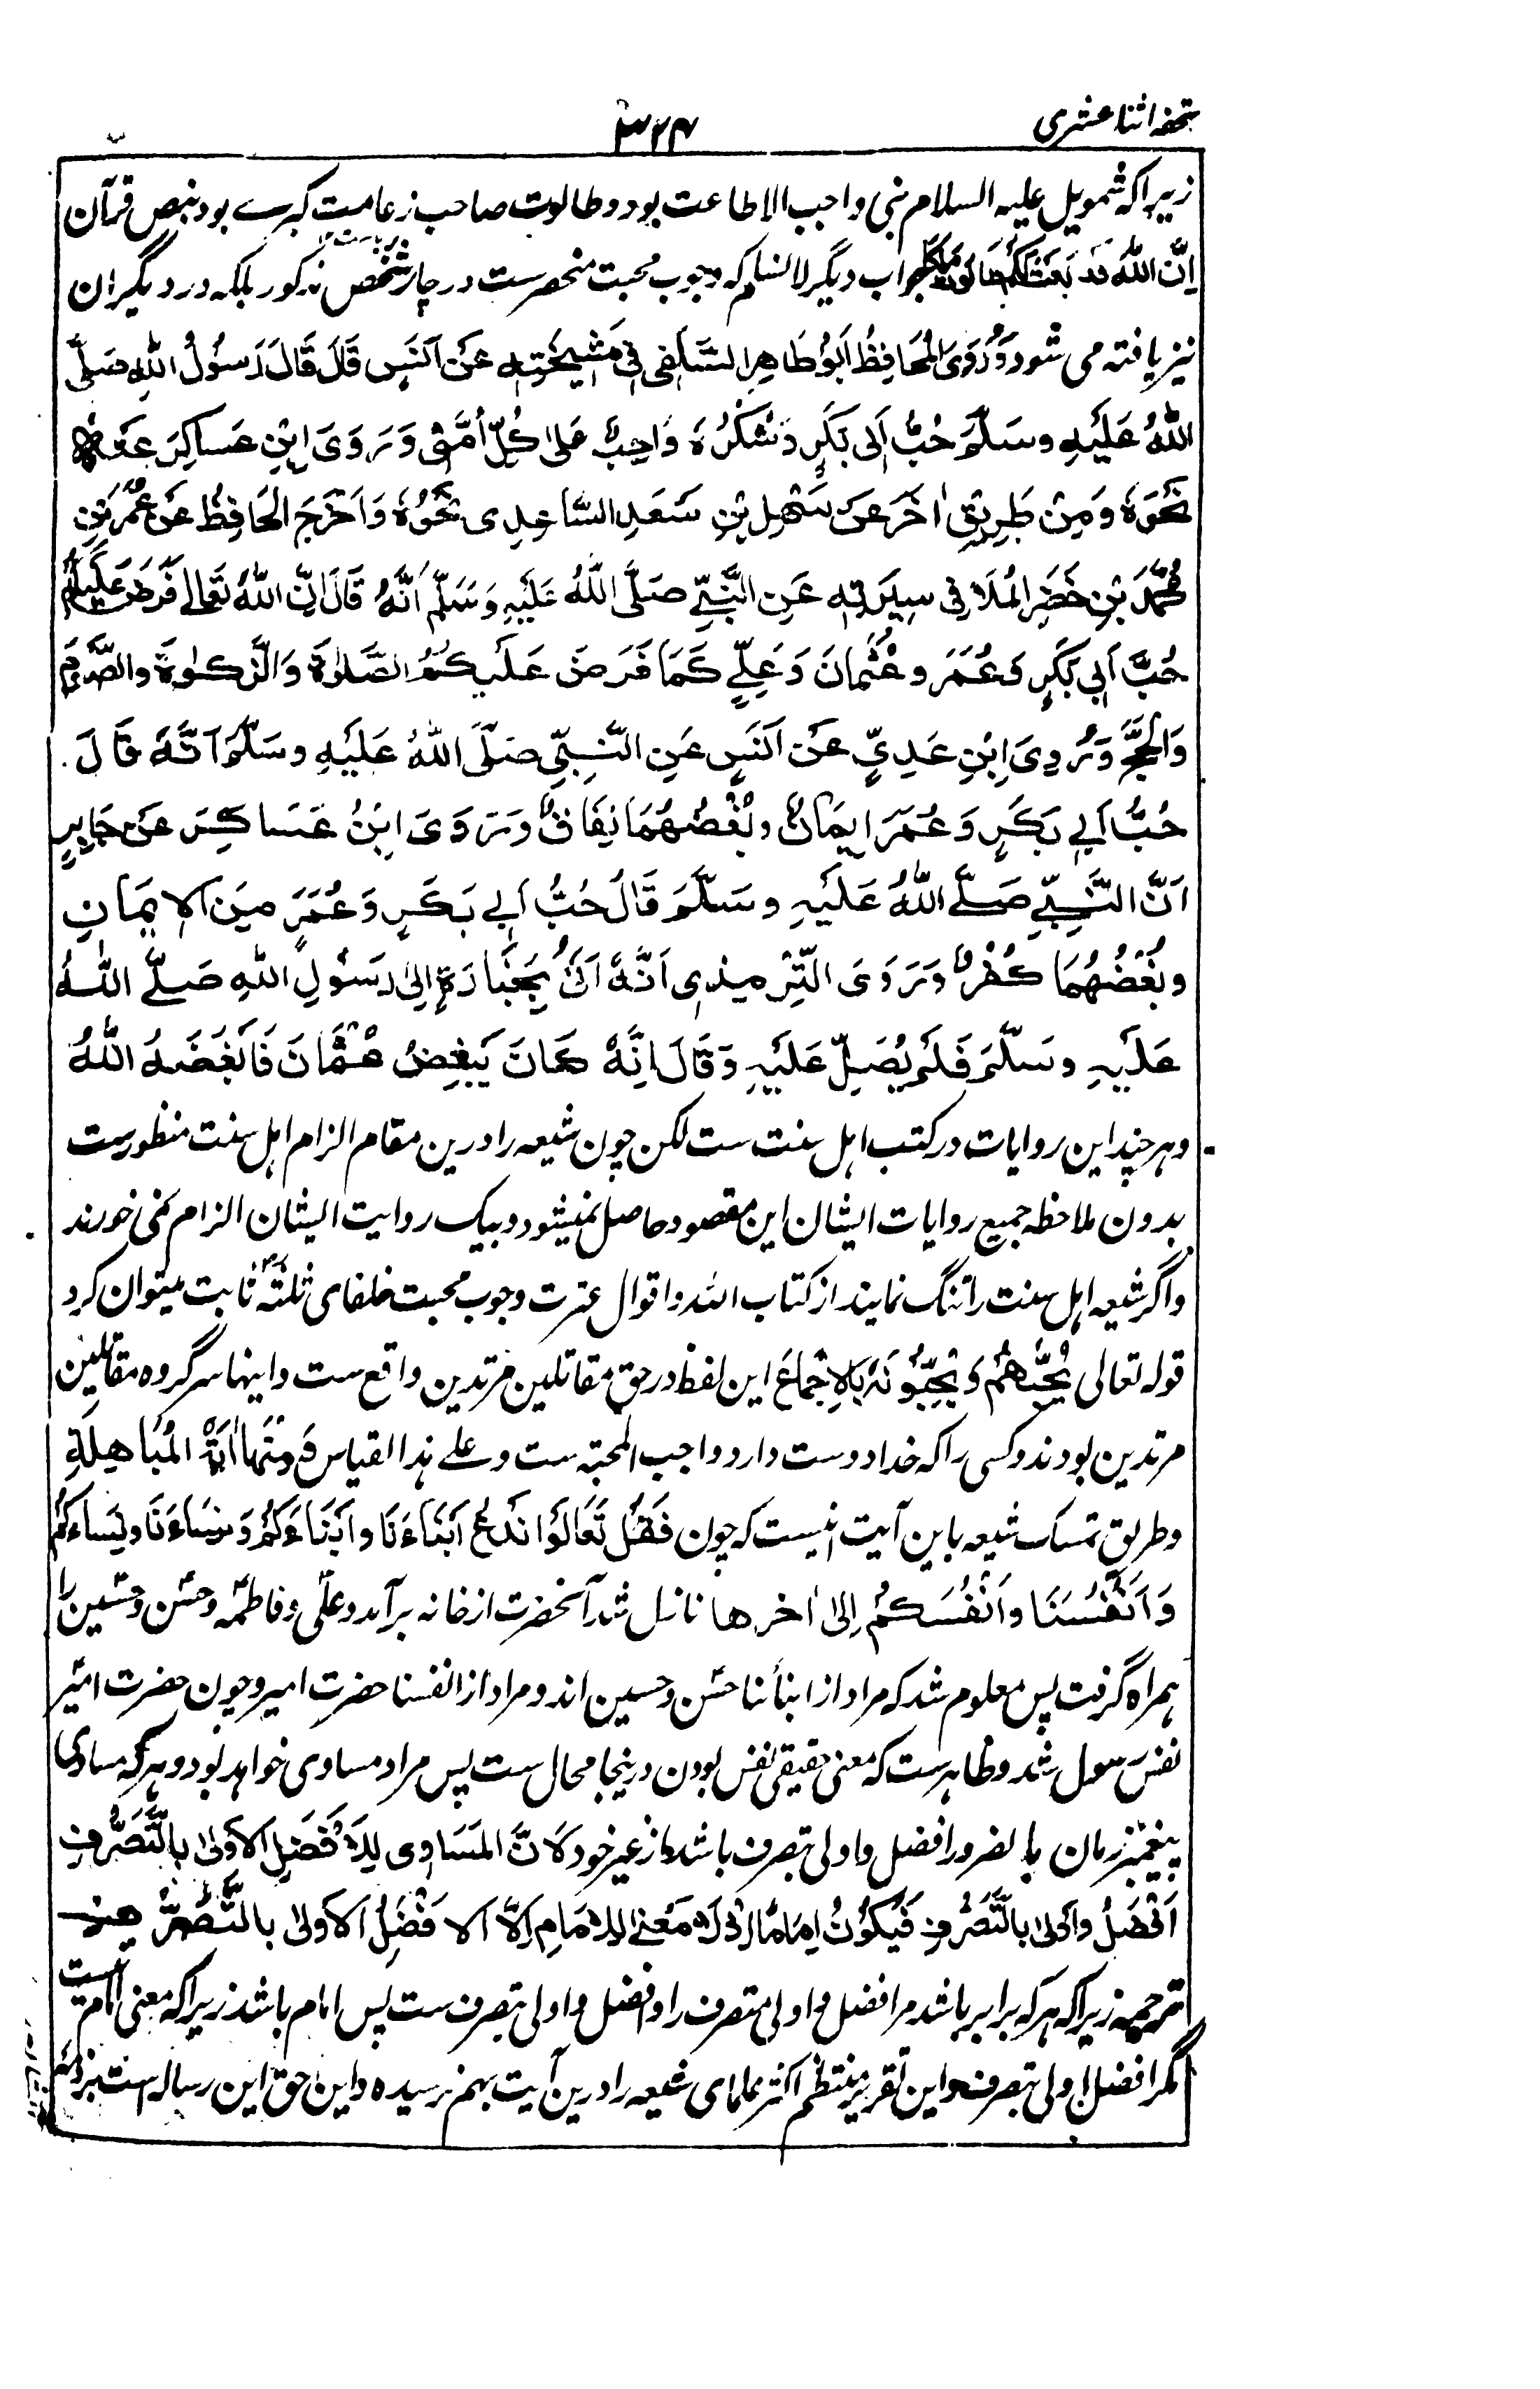 تحفه اثنا عشری
۳۲۴
زیراکه شمویل علیه السلام نبی واجب الاطاعت بود و طالوت صاحب زعامت کبرے بود بنص قرآن
اِنَّ اللهَ قَد بَعَثَ لَکُم طَالُوتَ مَلِکًا جواب دیگر لا نسلم که وجوب محبت منحصرست در چار شخص مذکور بلکه در دیگران
نیز یافته می شود وَرَوَى الْحَافِظُ اَبُوْ طَاهِرِ السَّلَفِی فِی مَشِیْخَتِهٖ عَنْ اَنَسٍ قَالَ قَالَ رَسُوْلُ اللهِ صَلَّی
اللهُ عَلَیْهِ وسَلَّمَ حُبُّ اَبِی بَکْرٍ وَشُکْرُهٗ وَاجِبٌ عَلٰی کُلِّ اُمَّتِی وَرَوَی ابْنُ عَسَاکِرَ عَنْهُ
نَحْوَهٗ وَمِنْ طَرِیْقٍ اٰخَرَ عَنْ سَهْلِ بْنِ سَعْدِ السَّاعِدِی نَحْوُهٗ وَاَخْرَجَ الْحَافِظُ عَنْ عُمَرَ بْنِ
مُحَمَّدِ بْنِ خَضِرِ الْمُلَا فِی سِیْرَتِهٖ عَنِ النَّبِیِّ صَلَّی اللهُ عَلَیْهِ وَسَلَّمَ اَنَّهٗ قَالَ اِنَّ اللهَ تَعَالٰی فَرَضَ عَلَیْکُمْ
حُبَّ اَبِی بَکْرٍ وَعُمَرَ وعُثْمَانَ وَعَلِیٍّ کَمَا فَرَضَ عَلَیْکُمُ الصَّلٰوةَ وَالزَّکٰوةَ والصَّوْمَ
وَالْحَجَّ وَرَوٰی اِبْنِ عَدِیٍّ عَنْ اَنَسٍ عَنِ النَّبِیِّ صَلَّی اللهُ عَلَیْهِ وسَلَّمَ اَنَّهٗ قَالَ
حُبُّ اَبِی بَکْرٍ وَعُمَرَ اِیْمَانٌ وبُغْضُهُمَا نِفَاقٌ وَرَوَی ابْنُ عَسَاکِرَ عَنْ جَابِرٍ
اَنَّ النَّبِیَّ صَلَّے اللهُ عَلَیْهِ وسَلَّمَ قَالَ حُبُّ اَبِی بَکْرٍ وَعُمَرَ مِنَ الْاِیْمَانِ
وبُغْضُهُمَا کُفْرٌ وَرَوَی التِّرْمِذِی اَنَّهٗ اَتٰی بِجَنَازَةٍ اِلٰی رَسُوْلِ اللهِ صَلَّے اللهُ
عَلَیْهِ وسَلَّمَ فَلَمْ یُصَلِّ عَلَیْهِ وَقَالَ اِنَّهٗ کَانَ یُبْغِضُ عُثْمَانَ فَاَبْغَضَهُ اللهُ
و هر چند این روایات در کتب اهل سنت ست لکن چون شیعه را درین مقام الزام اهل سنت منظورست
بدون ملاحظه جمیع روایات ایشان این مقصود حاصل نمیشود و بیک روایت ایشان الزام نمی خورند
و اگر شیعه اهل سنت را تنگ نمایند از کتاب الله و اقوال عترت وجوب محبت خلفای ثلثه ثابت میتوان کرد
قوله تعالی یُحِبُّهُمْ وَ یُحِبُّوْنَهٗ بِالْاِجْمَاعِ این لفظ در حق مقاتلین مرتدین واقع ست و اینها سرگروه مقاتلین
مرتدین بودند و کسی را که خدا دوست دارد واجب المحبة ست و علی هذا القیاس وَمِنْهَا اٰیَةُ الْمُبَاهِلَةِ
و طریق تمسک شیعه باین آیت اینست که چون فَقُلْ تَعَالَوْا نَدْعُ اَبْنَاءَنَا وَاَبْنَاءَکُمْ وَنِسَاءَنَا وَنِسَاءَکُمْ
وَاَنْفُسَنَا وَاَنْفُسَکُمْ اِلٰی اٰخرها نازل شد آنحضرت از خانه برآمد و علی و فاطمه و حسن و حسین را
همراه گرفت پس معلوم شد که مراد از ابنأنا حسن و حسین اند و مراد از انفسنا حضرت امیر و چون حضرت امیر
نفس رسول شد و ظاهرست که معنی حقیقی نفس بودن درینجا محال ست پس مراد مساوی خواهد بود و هرکه مساوی
پیغمبر زمان باشد بالضرور افضل و اولی بتصرف باشد از غیر خود لَاَنَّ الْمُسَاوِی لِلْاَفْضَلِ الْاَوْلٰی بِالتَّصَرُّفِ
اَفْضَلُ وَاَوْلٰی بِالتَّصَرُّفِ فَیَکُوْنُ اِمَامًا اِذْ لَا مَعْنٰی لِلْاِمَامِ اِلَّا الْاَفْضَلُ الْاَوْلٰی بِالتَّصَرُّفِ
ترجمه زیراکه هرکه برابر باشد مر افضل و اولی بتصرف را و افضل و اولی بتصرف ست پس امام باشد زیراکه معنی امام نیست
مگر افضل اولی بتصرف و این تقریر منتظم اکثر علمای شیعه را درین آیت بهم نرسیده و این حق این رساله است